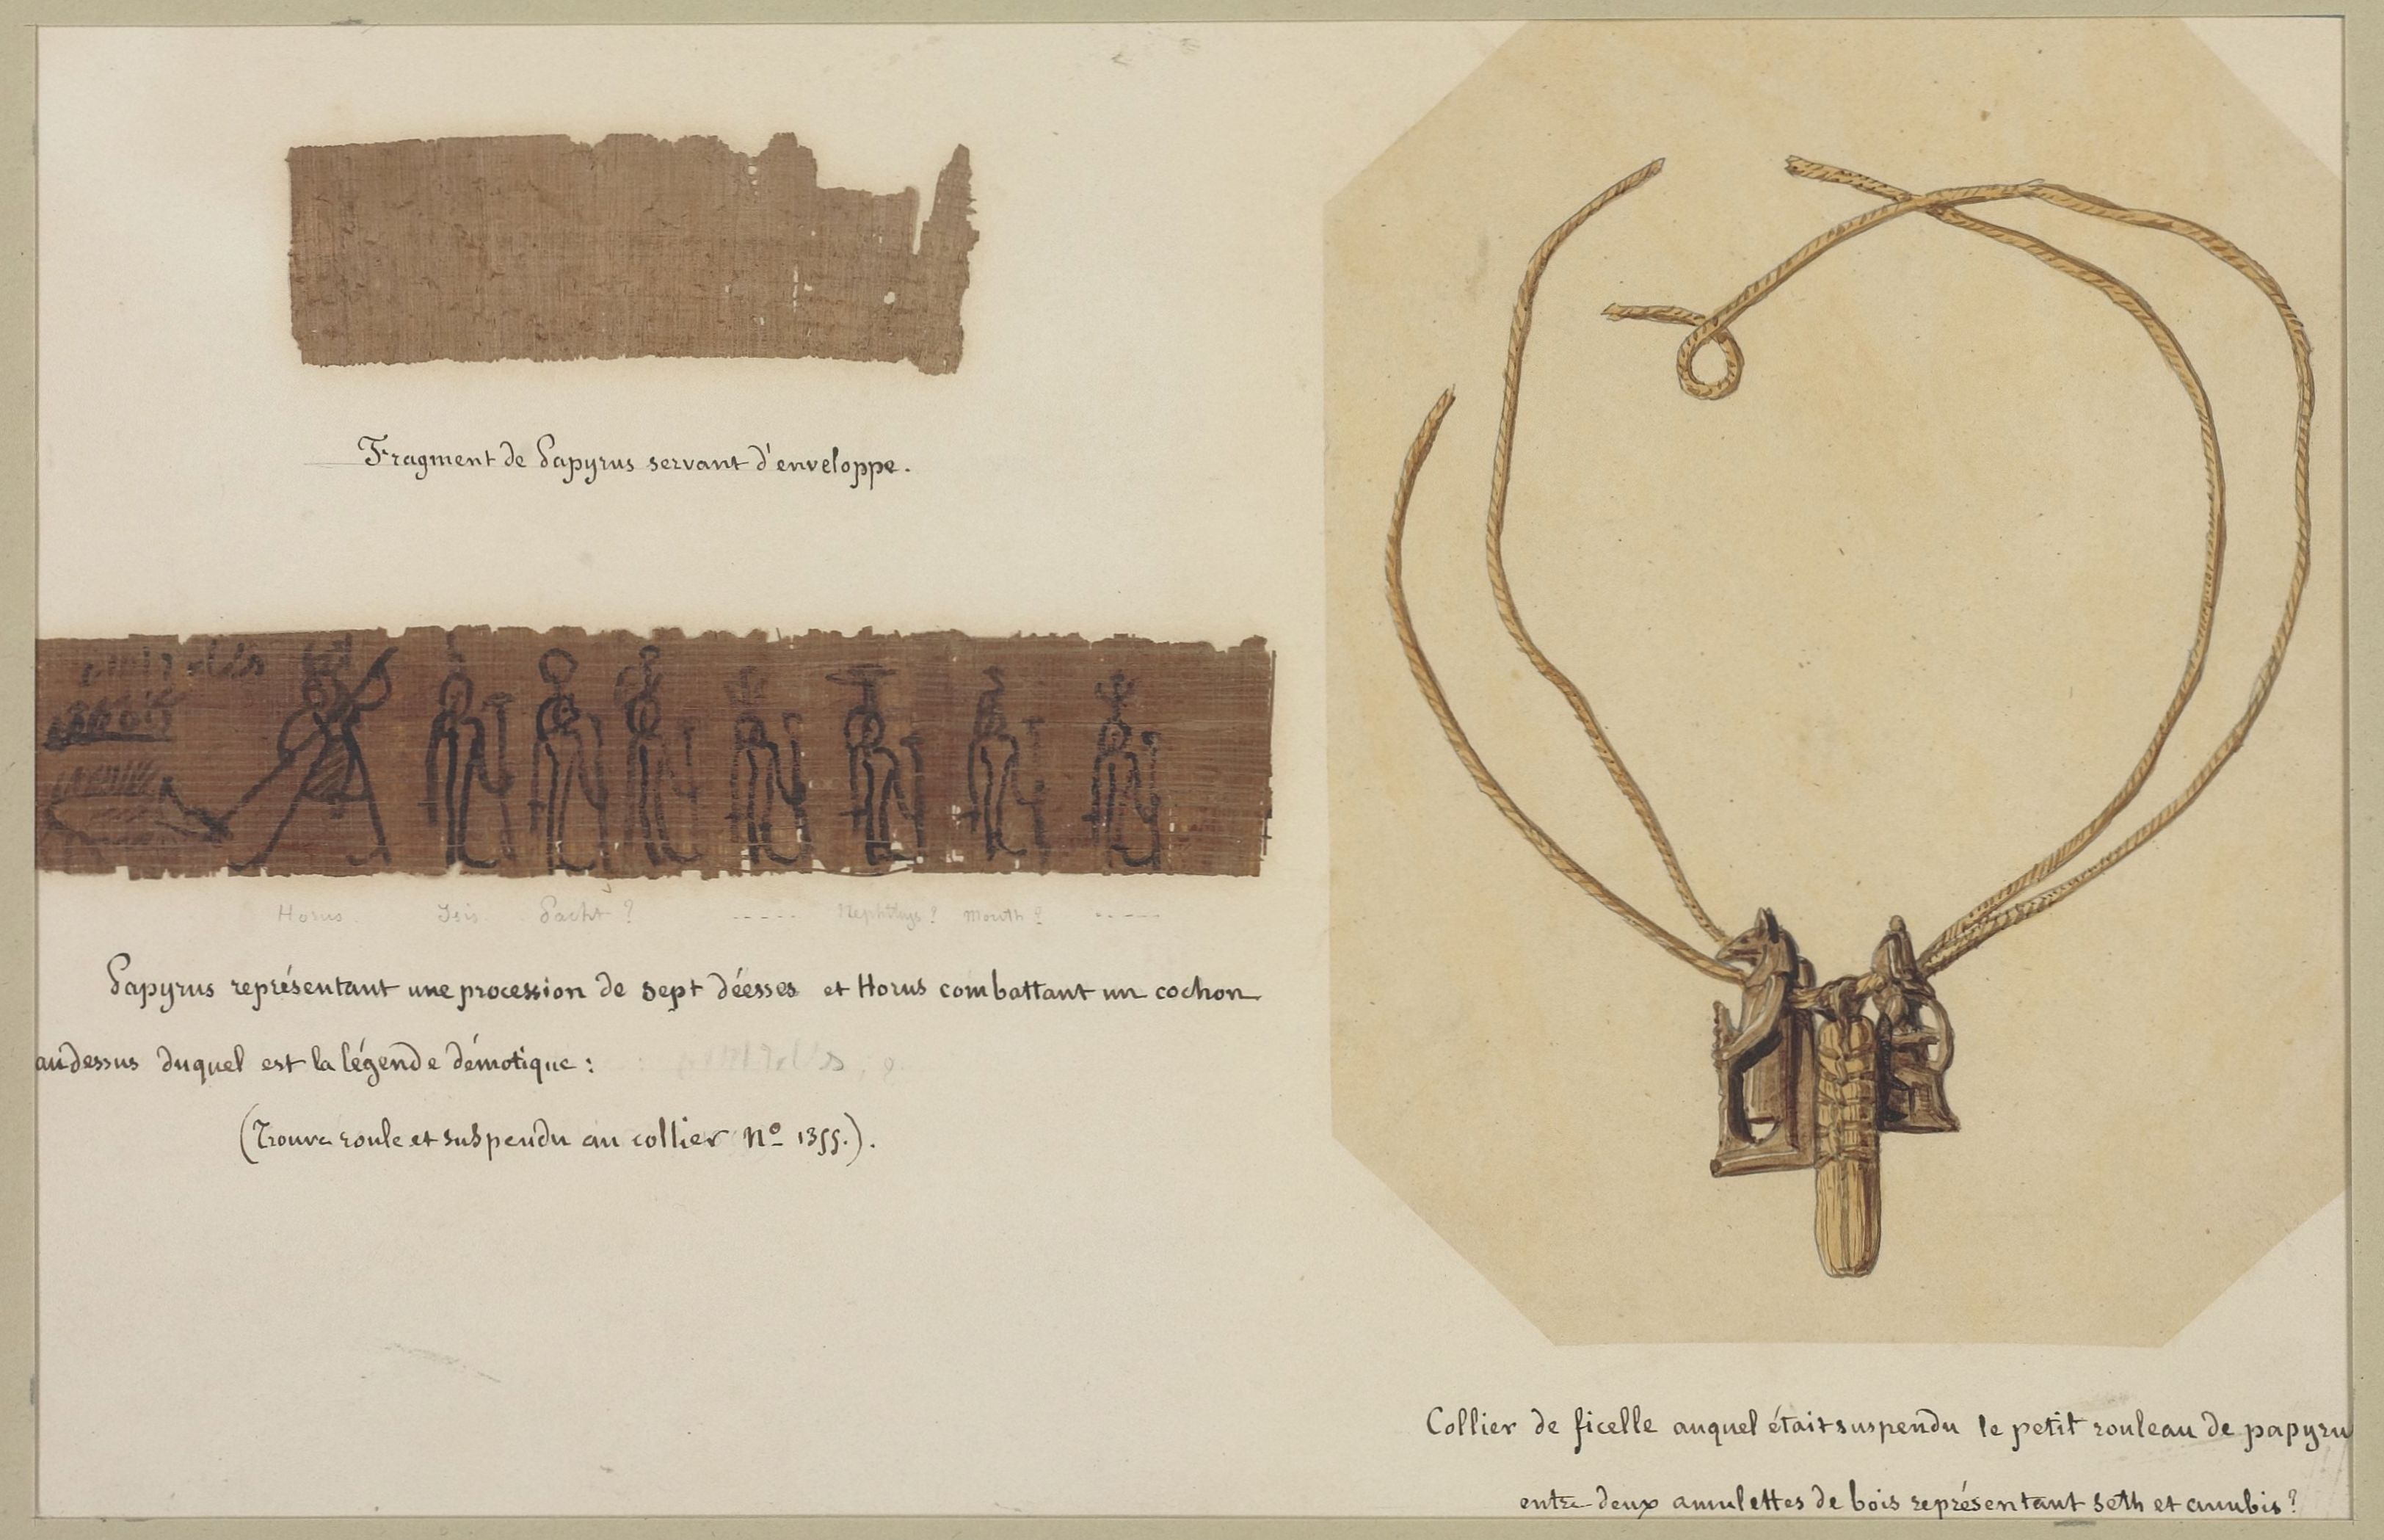 Fragment de Papyrus servant d'enveloppe.
Horus Isis Pacht ? ----- Nephthys ? Mouth ? -----
Papyrus représentant une procession de sept déesses et Horus combattant un cochon
au dessus duquel est la légende démotique :
(Trouvé roulé et suspendu au collier No 1355.).
Collier de ficelle auquel était suspendu le petit rouleau de papyru
entre deux amulettes de bois représentant Seth et anubis ?